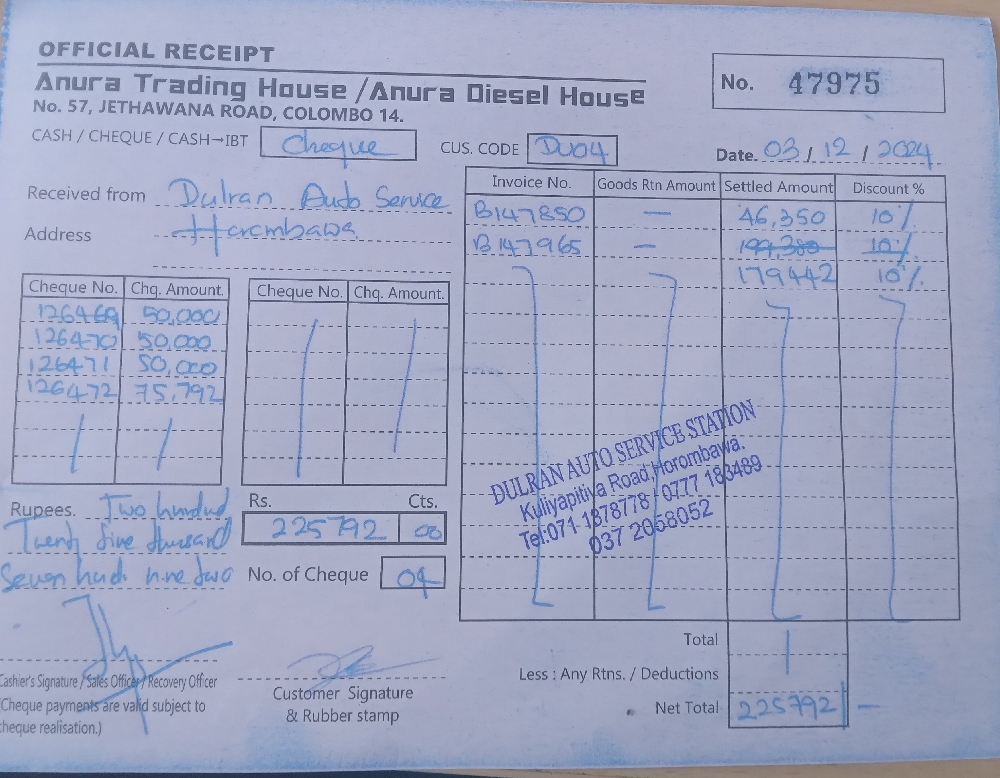 OFFICIAL RECEIPT
Anura Trading House /Anura Diesel House
No. 57, JETHAWANA ROAD, COLOMBO 14.
No. 47975
CASH / CHEQUE / CASH→IBT Cheque
CUS. CODE DU04
Date. 03 / 12 / 2024
Received from Dulran Auto Service
Address Horombawa
Invoice No. Goods Rtn Amount Settled Amount Discount %
B147850 — 46,350 10%
B147965 — 199,380 10%
179442 10%
Cheque No. Chq. Amount. Cheque No. Chq. Amount.
126469 50,000
126470 50,000
126471 50,000
126472 75,792
DULRAN AUTO SERVICE STATION
Kuliyapitiya Road, Horombawa.
Tel:071 1878778 / 0777 183489
037 2058052
Rupees. Two hundred
Twenty five thousand
Seven hud. nine two
Rs. Cts.
225792 00
No. of Cheque 04
Cashier's Signature / Sales Officer / Recovery Officer
(Cheque payments are valid subject to
cheque realisation.)
Customer Signature
& Rubber stamp
Total
Less : Any Rtns. / Deductions
Net Total 225792 —